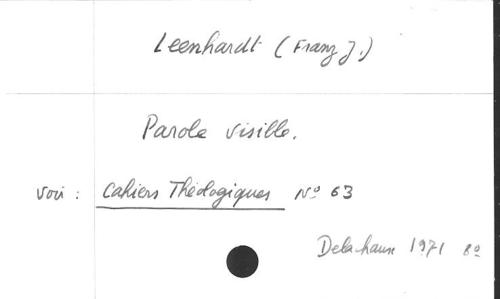 Leenhardt (Franz J.)
Parole visible.
voir : Cahiers Théologiques No 63
Delachaux 1971 8o